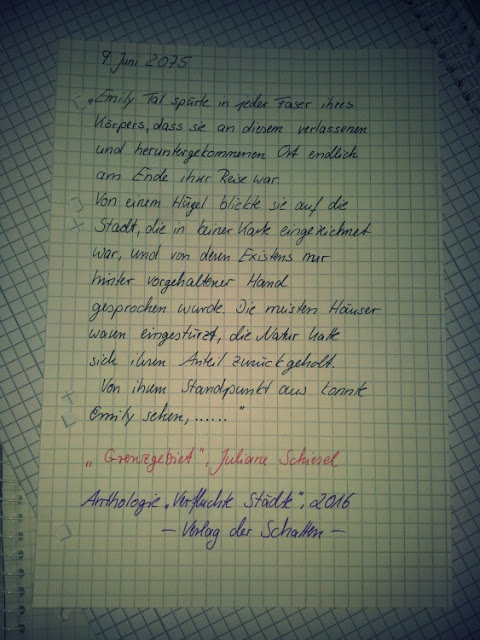 9. Juni 2075
„Emily Tal spürte in jeder Faser ihres
Körpers, dass sie an diesem verlassenen
und heruntergekommenen Ort endlich
am Ende ihrer Reise war.
Von einem Hügel blickte sie auf die
Stadt, die in keiner Karte eingezeichnet
war, und von deren Existens nur
hinter vorgehaltener Hand
gesprochen wurde. Die meisten Häuser
waren eingestürzt, die Natur hatte
sich ihren Anteil zurückgeholt.
Von ihrem Standpunkt aus konnte
Emily sehen, ......"
„Grenzgebiet", Juliane Schiesel
Anthologie „Verfluchte Städte", 2016
- Verlag der Schatten -